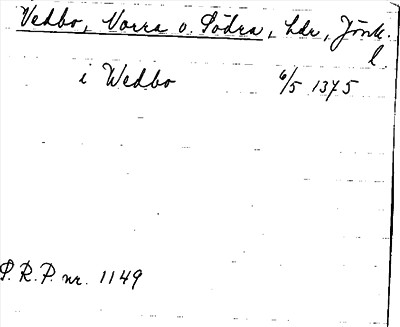 Vedbo, Norra o. Södra, hdr, Jönk.
l.
i Wedbo 6/5 1375
S.R.P. nr. 1149